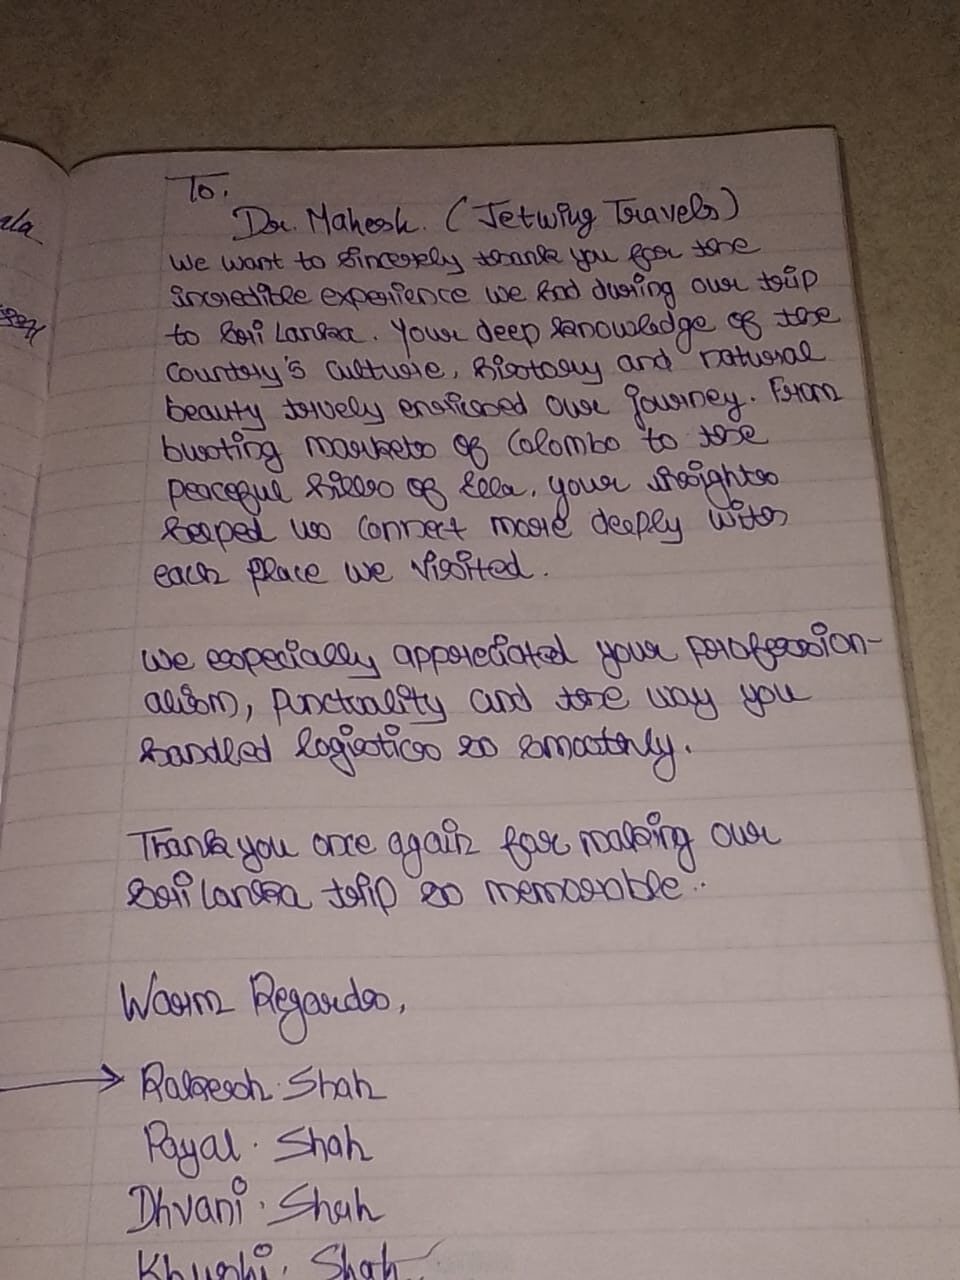 To,
Dr. Mahesh. (Jetwing Travels)
We want to sincerely thank you for the
incredible experience we had during our trip
to Sri Lanka. Your deep knowledge of the
country's culture, history and natural
beauty truely enriched our journey. From
busting markets of Colombo to the
peaceful hills of Ella, your insights
helped us connect more deeply with
each place we visited.
We especially appreciated your profession-
alism, punctuality and the way you
handled logistics so smoothly.
Thank you once again for making our
Sri Lanka trip so memorable..
Warm Regards,
Rakesh. Shah
Payal. Shah
Dhvani. Shah
Khushi. Shah